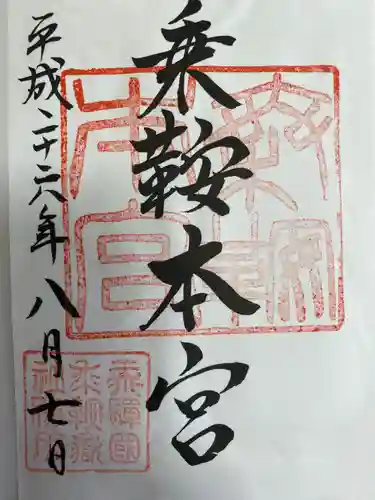 乗鞍本宮
平成二十六年八月七日
乗鞍本宮